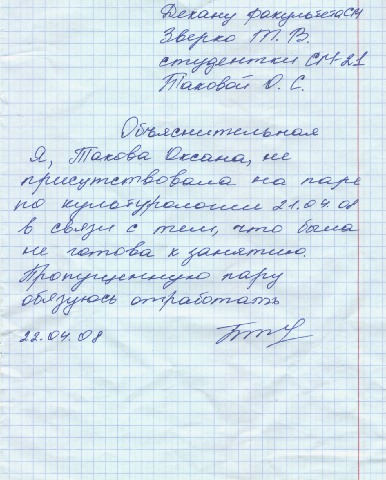 Декану факультета СМ
Зверко Т. В.
студентки СМ 21
Таковой О. С.
Объяснительная
Я, Такова Оксана, не
присутствовала на паре
по культурологии 21.04.08
в связи с тем, что была
не готова к занятию.
Пропущенную пару
обязуюсь отработать
22.04.08